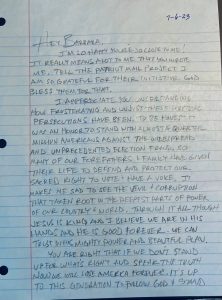 7-6-23
Hey Barbara,
I'm so happy you're so close to me!
It really means alot to me that you wrote
me. Tell the Patriot Mail Project I
am so grateful for their initiative. God
bless them for that.
I appreciate you understanding
how frustrating and unjust these political
persecutions have been. To be honest it
was an honor to stand with almost a quarter
million Americans against the widespread
and unprecedented election fraud. So
many of our forefathers & family had given
their life to defend and protect our
sacred right to vote & have a voice. It
makes me sad to see the evil & corruption
that taken root in the deepest parts of power
of our country & world. Through it all though
Jesus is King and I believe we are in his
hands and he is good forever. We can
trust in his mighty power and beautiful plan.
You are right that if we don't stand
up for what's right and speak the truth
now we will lose America forever. It's up
to this generation to follow God & stand